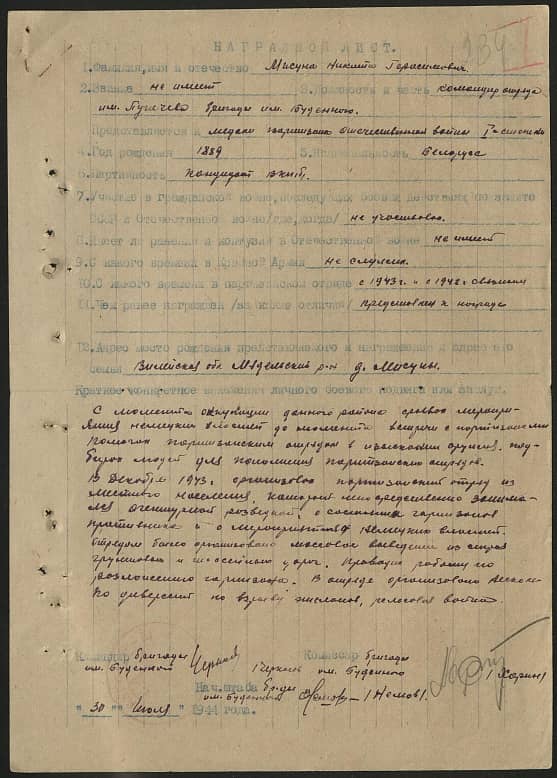 234
НАГРАДНОЙ ЛИСТ.
1. Фамилия, имя и отчество Мисуна Никита Герасимович.
2. Звание не имеет 3. Должность и часть командир отряда
им. Пугачева бригады им. Буденного.
Представляется к медали партизана отечественной войны I-степени
4. Год рождения 1889 5. Национальность Белорус
6. Партийность кандидат ВКП/б/.
7. Участие в гражданской войне, последующих боевых действиях по защите
СССР и Отечественной войне /где, когда/ не участвовал.
8. Имеет ли ранения и контузии в Отечественной войне не имеет
9. С какого времени в Красной Армии не служил.
10. С какого времени в партизанском отряде с 1943 г. и с 1942 г. связным
11. Чем ранее награжден /за какие отличия/ представлен к награде
12. Адрес место рождения представляемого к награждению и адрес его
семьи Вилейская обл. Мядельский р-н д. Мисуны.
Краткое конкретное изложение личного боевого подвига или заслуг.
С момента оккупации данного района срывал мероприятия
немецких властей до момента встречи с партизанами
помогал партизанским отрядам в изыскании оружия, подбирал
людей для пополнения партизанских отрядов.
В Декабре 1943 г. организовал партизанский отряд из
местного населения, который непосредственно занимался
агентурной разведкой, о состоянии гарнизонов
противника и о мероприятиях немецких властей.
Отрядом было организовано массовое выведение из строя
грунтовых и шоссейных дорог. Проводил работу по
разложению гарнизона. В отряде организовано несколько
диверсий по взрыву эшелонов,
Командир бригады Комиссар бригады
им. Буденного /Черкас им. Буденного /Харин/
Нач. штаба бр-ды
им. Буденного /Немов/.
"30" Июля 1944 года.